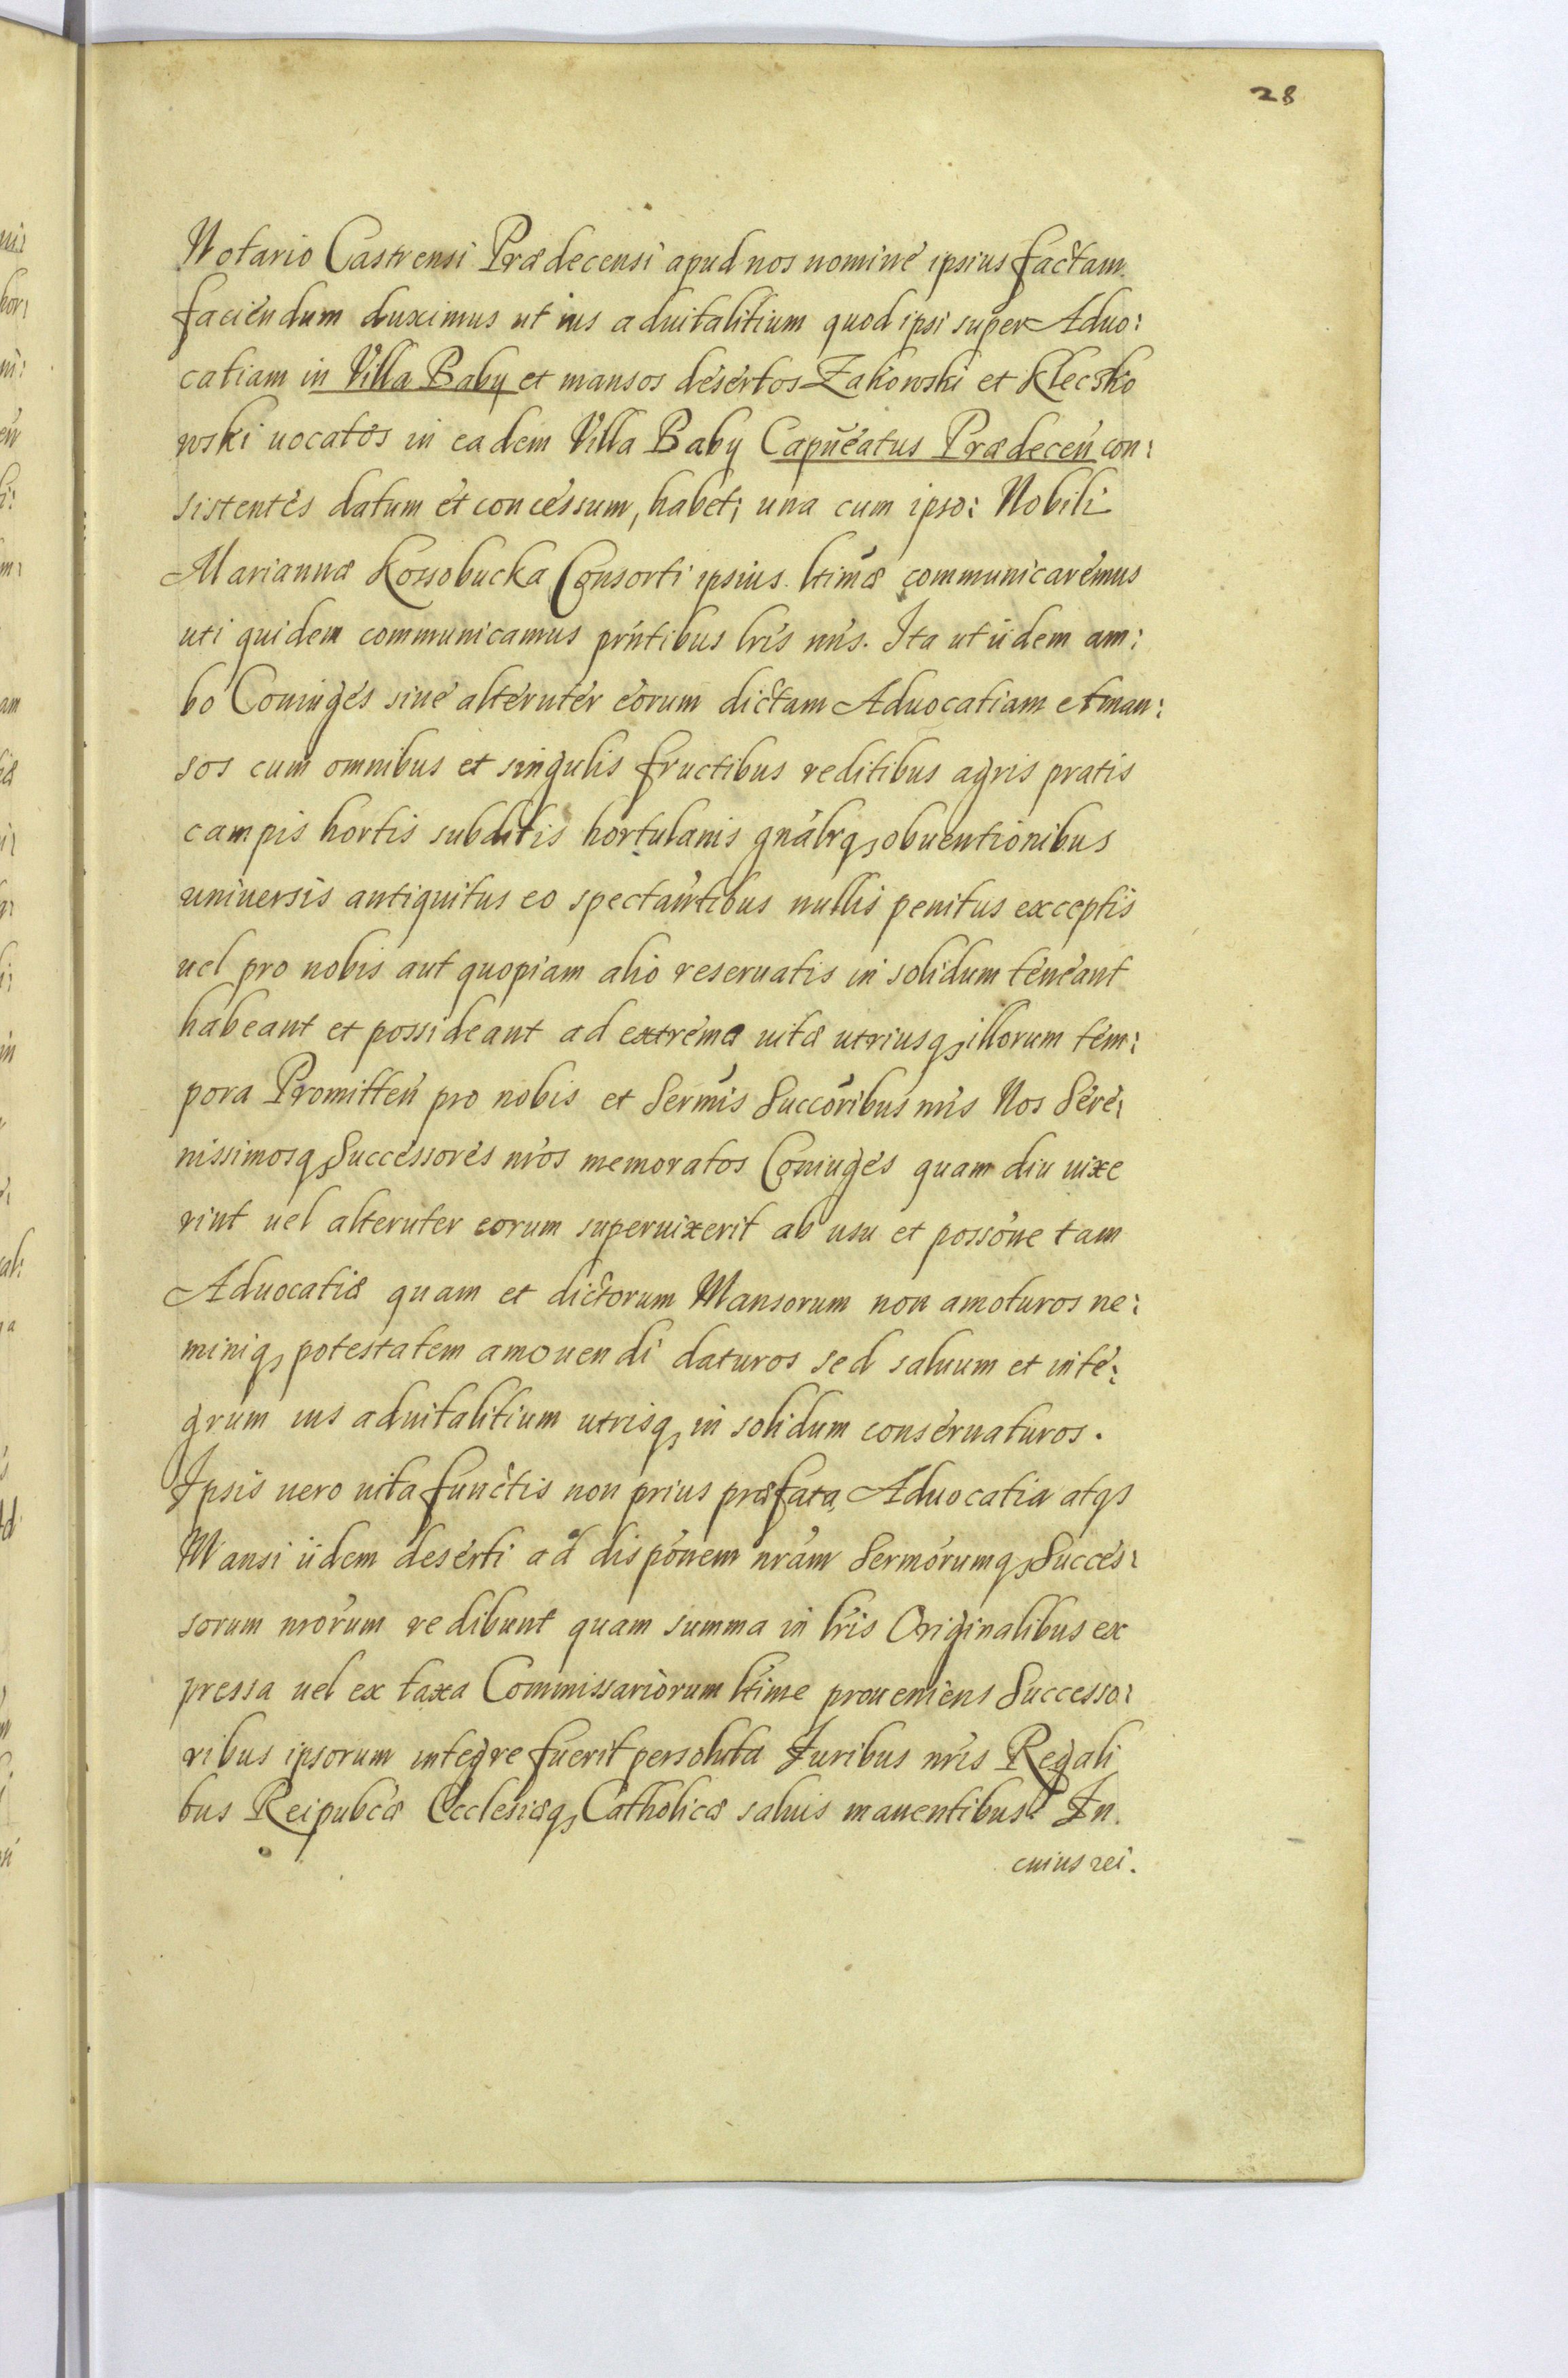 28
Notario Castrensi Prædecensi apud nos nomine ipsius factam
faciendum duximus ut ius aduitalitium quod ipsi super Aduo:
catiam in Villa Baby et mansos desertos Zakowski et Klecsko
wski uocatos in eadem Villa Baby Capnéatus Prædecen con:
sistentes datum et concessum, habet; una cum ipso: Nobili
Mariannæ Kossobucka Consorti ipsius ltimæ communicaremus
uti quidem communicamus prntibus lris nris. Ita ut iidem am:
bo Coniuges siue alteruter eorum dictam Aduocatiam et man:
sos cum omnibus et singulis fructibus reditibus agris pratis
campis hortis subditis hortulanis gnalrq3 obuentionibus
uniuersis antiquitus eo spectantibus nullis penitus exceptis
uel pro nobis aut quopiam alio reseruatis in solidum teneant
habeant et possideant ad extrema uitæ utriusq3 illorum tem:
pora Promitten pro nobis et Sermis Succoribus nris Nos Sere:
nissimosq3 Successores nros memoratos Coniuges quam diu uixe
rint uel alteruter eorum superuixerit ab usu et possone tam
Aduocatiæ quam et dictorum Mansorum non amoturos ne:
miniq3 potestatem amouendi daturos sed saluum et inte:
grum ius aduitalitium utrisq3 in solidum conseruaturos.
Ipsis uero uita functis non prius præfata Aduocatia atq3
Mansi iidem deserti ad disponem nram Sermorumq3 Succes:
sorum nrorum redibunt quam summa in lris Originalibus ex
pressa uel ex taxa Commissariorum ltime proueniens Successo:
ribus ipsorum integre fuerit persoluta Iuribus nris Regali
bus Reipubcæ Ecclesiæq3 Catholicæ saluis manentibus In
cuius rei.